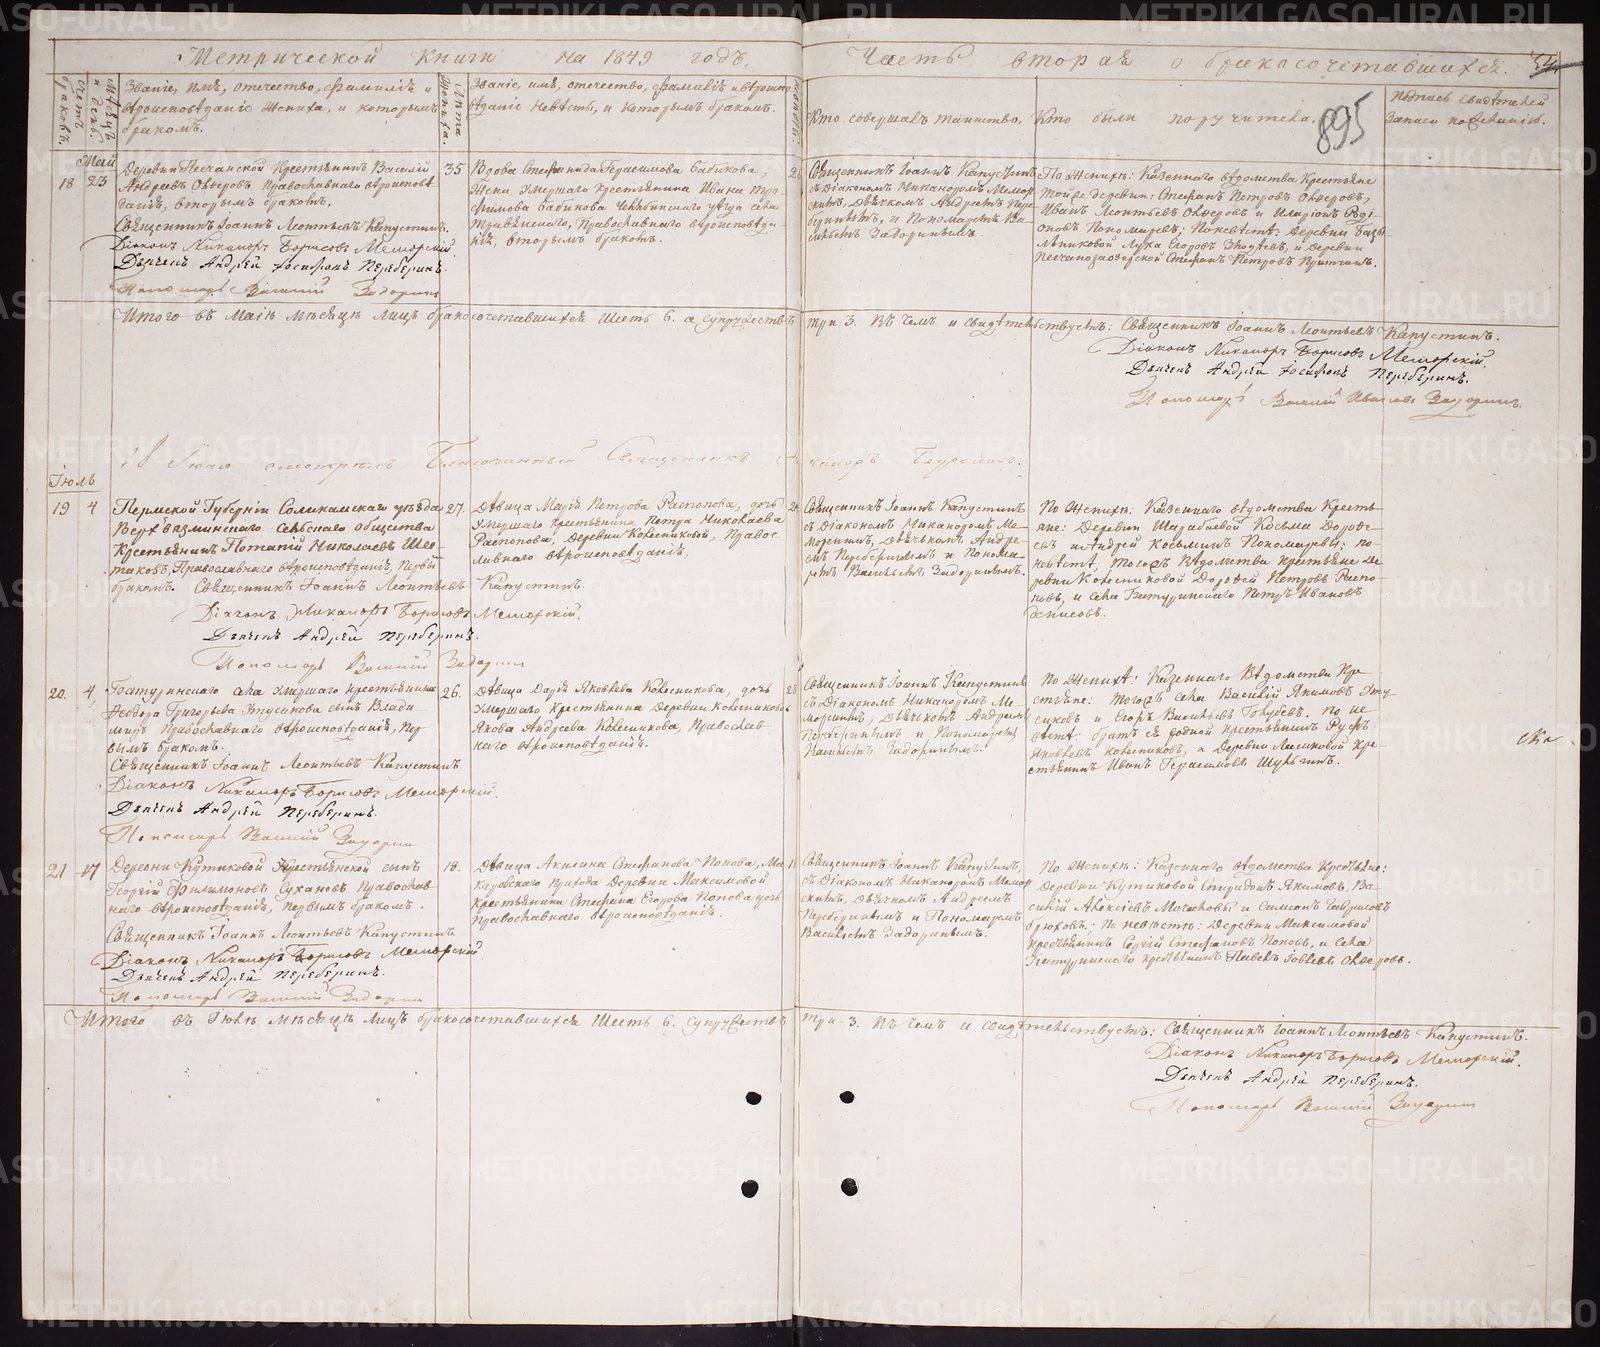 Метрической Книги на 1849 годъ.
Часть вторая о бракосочетавшихся.
895
Счетъ браковъ.
Мѣсяцъ и день.
Званіе, имя, отечество, фамилія и
вѣроисповѣданіе жениха, и которымъ
бракомъ.
Лѣта жениха.
Званіе, имя, отечество, фамилія и вѣроиспо
вѣданіе невѣсты, и которымъ бракомъ.
Кто совершалъ таинство.
Кто были поручители.
Подпись свидѣтелей
записи по желанію.
Май
18 23
Деревни Песчанской Крестьянинъ Василій
Андреевъ Православнаго вѣроисповѣ
данія, вторымъ бракомъ.
Священникъ Іоаннъ Леонтьевъ Капустинъ.
Діаконъ Никаноръ Борисовъ Меморскій.
Дьячекъ Андрей Іосифовъ Переберинъ.
Пономарь Василій Задоринъ
35
Вдова Стефанида Герасимова Бабикова,
жена умершаго крестьянина Ивана Тро
фимова Бабикова Челябинскаго уѣзда села
Православнаго вѣроисповѣда
нія, вторымъ бракомъ.
Священникъ Іоаннъ Капустинъ
съ Діакономъ Никаноромъ Мемор
скимъ, Дьячкомъ Андреемъ Пере
беринымъ, и Пономаремъ Ва
сильемъ Задоринымъ.
По женихѣ: Казеннаго вѣдомства Крестьяне
той же деревни: Стефанъ Петровъ
Иванъ Леонтьевъ и Иларіонъ Роді
оновъ Пономаревъ; По невѣстѣ: деревни
Лука Егоровъ и деревни
Песчанозаозерской Стефанъ Петровъ
Итого въ Маіѣ мѣсяцѣ лицъ бракосочетавшихся шесть 6. а супружествъ три 3. Въ чемъ и свидѣтельствуетъ: Священникъ Іоаннъ Леонтьевъ Капустинъ.
Діаконъ Никаноръ Борисовъ Меморскій.
Дьячекъ Андрей Іосифовъ Переберинъ.
Пономарь Василій Ивановъ Задоринъ.
смотрѣлъ Благочинный Священникъ
Іюль
19 4
Пермской Губерніи Соликамскаго уѣзда
сельскаго общества
Крестьянинъ Потапій Николаевъ Шес
таковъ, Православнаго вѣроисповѣданія, первымъ
бракомъ. Священникъ Іоаннъ Леонтьевъ Капустинъ.
Діаконъ Никаноръ Борисовъ Меморскій.
Дьячекъ Андрей Переберинъ.
Пономарь Василій Задоринъ
27.
Дѣвица Марія Петрова Распопова, дочь
умершаго крестьянина Петра Николаева
Распопова, деревни Колесниковой, Правос
лавнаго вѣроисповѣданія.
Священникъ Іоаннъ Капустинъ
съ Діакономъ Никаноромъ Ме
морскимъ, Дьячкомъ Андре
емъ Переберинымъ и Понома
ремъ Васильемъ Задоринымъ.
По женихѣ: Казеннаго вѣдомства Кресть
яне: деревни Шарабаевой Косьма Дорофе
евъ и Андрей Косьминъ Пономаревы; по
невѣстѣ; тогожъ вѣдомства крестьяне де
ревни Колесниковой Дорофей Петровъ Распо
повъ, и села Батуринскаго Петръ Ивановъ
Денисовъ.
20. 4
Батуринскаго села умершаго крестьянина
Феодора Григорьева сынъ Влади
миръ Православнаго вѣроисповѣданія, пер
вымъ бракомъ.
Священникъ Іоаннъ Леонтьевъ Капустинъ.
Діаконъ Никаноръ Борисовъ Меморскій.
Дьячекъ Андрей Переберинъ.
Пономарь Василій Задоринъ
26.
Дѣвица Дарія Яковлева Колесникова, дочь
умершаго крестьянина деревни Колесниковой
Якова Андреева Колесникова, Православ
наго вѣроисповѣданія.
Священникъ Іоаннъ Капустинъ
съ Діакономъ Никаноромъ Ме
морскимъ, Дьячкомъ Андреемъ
Переберинымъ и Пономаремъ
Васильемъ Задоринымъ.
По женихѣ: Казеннаго вѣдомства Кре
стьяне: тогожъ села Василій Якимовъ
и Егоръ Васильевъ Голубевъ. по не
вѣстѣ: братъ ея родной крестьянинъ
Яковлевъ Колесниковъ, и деревни кре
стьянинъ Иванъ Герасимовъ Шульгинъ.
21 17
Деревни Кутиковой Крестьянской сынъ
Георгій Филимоновъ Сухановъ Православ
наго вѣроисповѣданія, первымъ бракомъ.
Священникъ Іоаннъ Леонтьевъ Капустинъ
Діаконъ Никаноръ Борисовъ Меморскій
Дьячекъ Андрей Переберинъ.
Пономарь Василій Задоринъ
18.
Дѣвица Акилина Стефанова Попова,
прихода деревни Максимовой
крестьянина Стефана Егорова Попова дочь
Православнаго вѣроисповѣданія.
Священникъ Іоаннъ Капустинъ,
съ Діакономъ Никаноромъ Мемор
скимъ, Дьячкомъ Андреемъ
Переберинымъ и Пономаремъ
Васильемъ Задоринымъ.
По женихѣ: Казеннаго вѣдомства крестьяне:
деревни Кутиковой Спиридонъ Якимовъ, Ва
силій Алексіевъ и Симеонъ Гавриловъ
По невѣстѣ: деревни Максимовой
крестьянинъ Сергій Стефановъ Поповъ, и села
Батуринскаго крестьянинъ Павелъ
Итого въ Іюлѣ мѣсяцѣ лицъ бракосочетавшихся шесть 6. супружествъ три 3. Въ чемъ и свидѣтельствуетъ: Священникъ Іоаннъ Леонтьевъ Капустинъ.
Діаконъ Никаноръ Борисовъ Меморскій.
Дьячекъ Андрей Переберинъ.
Пономарь Василій Задоринъ
METRIKI.GASO-URAL.RU